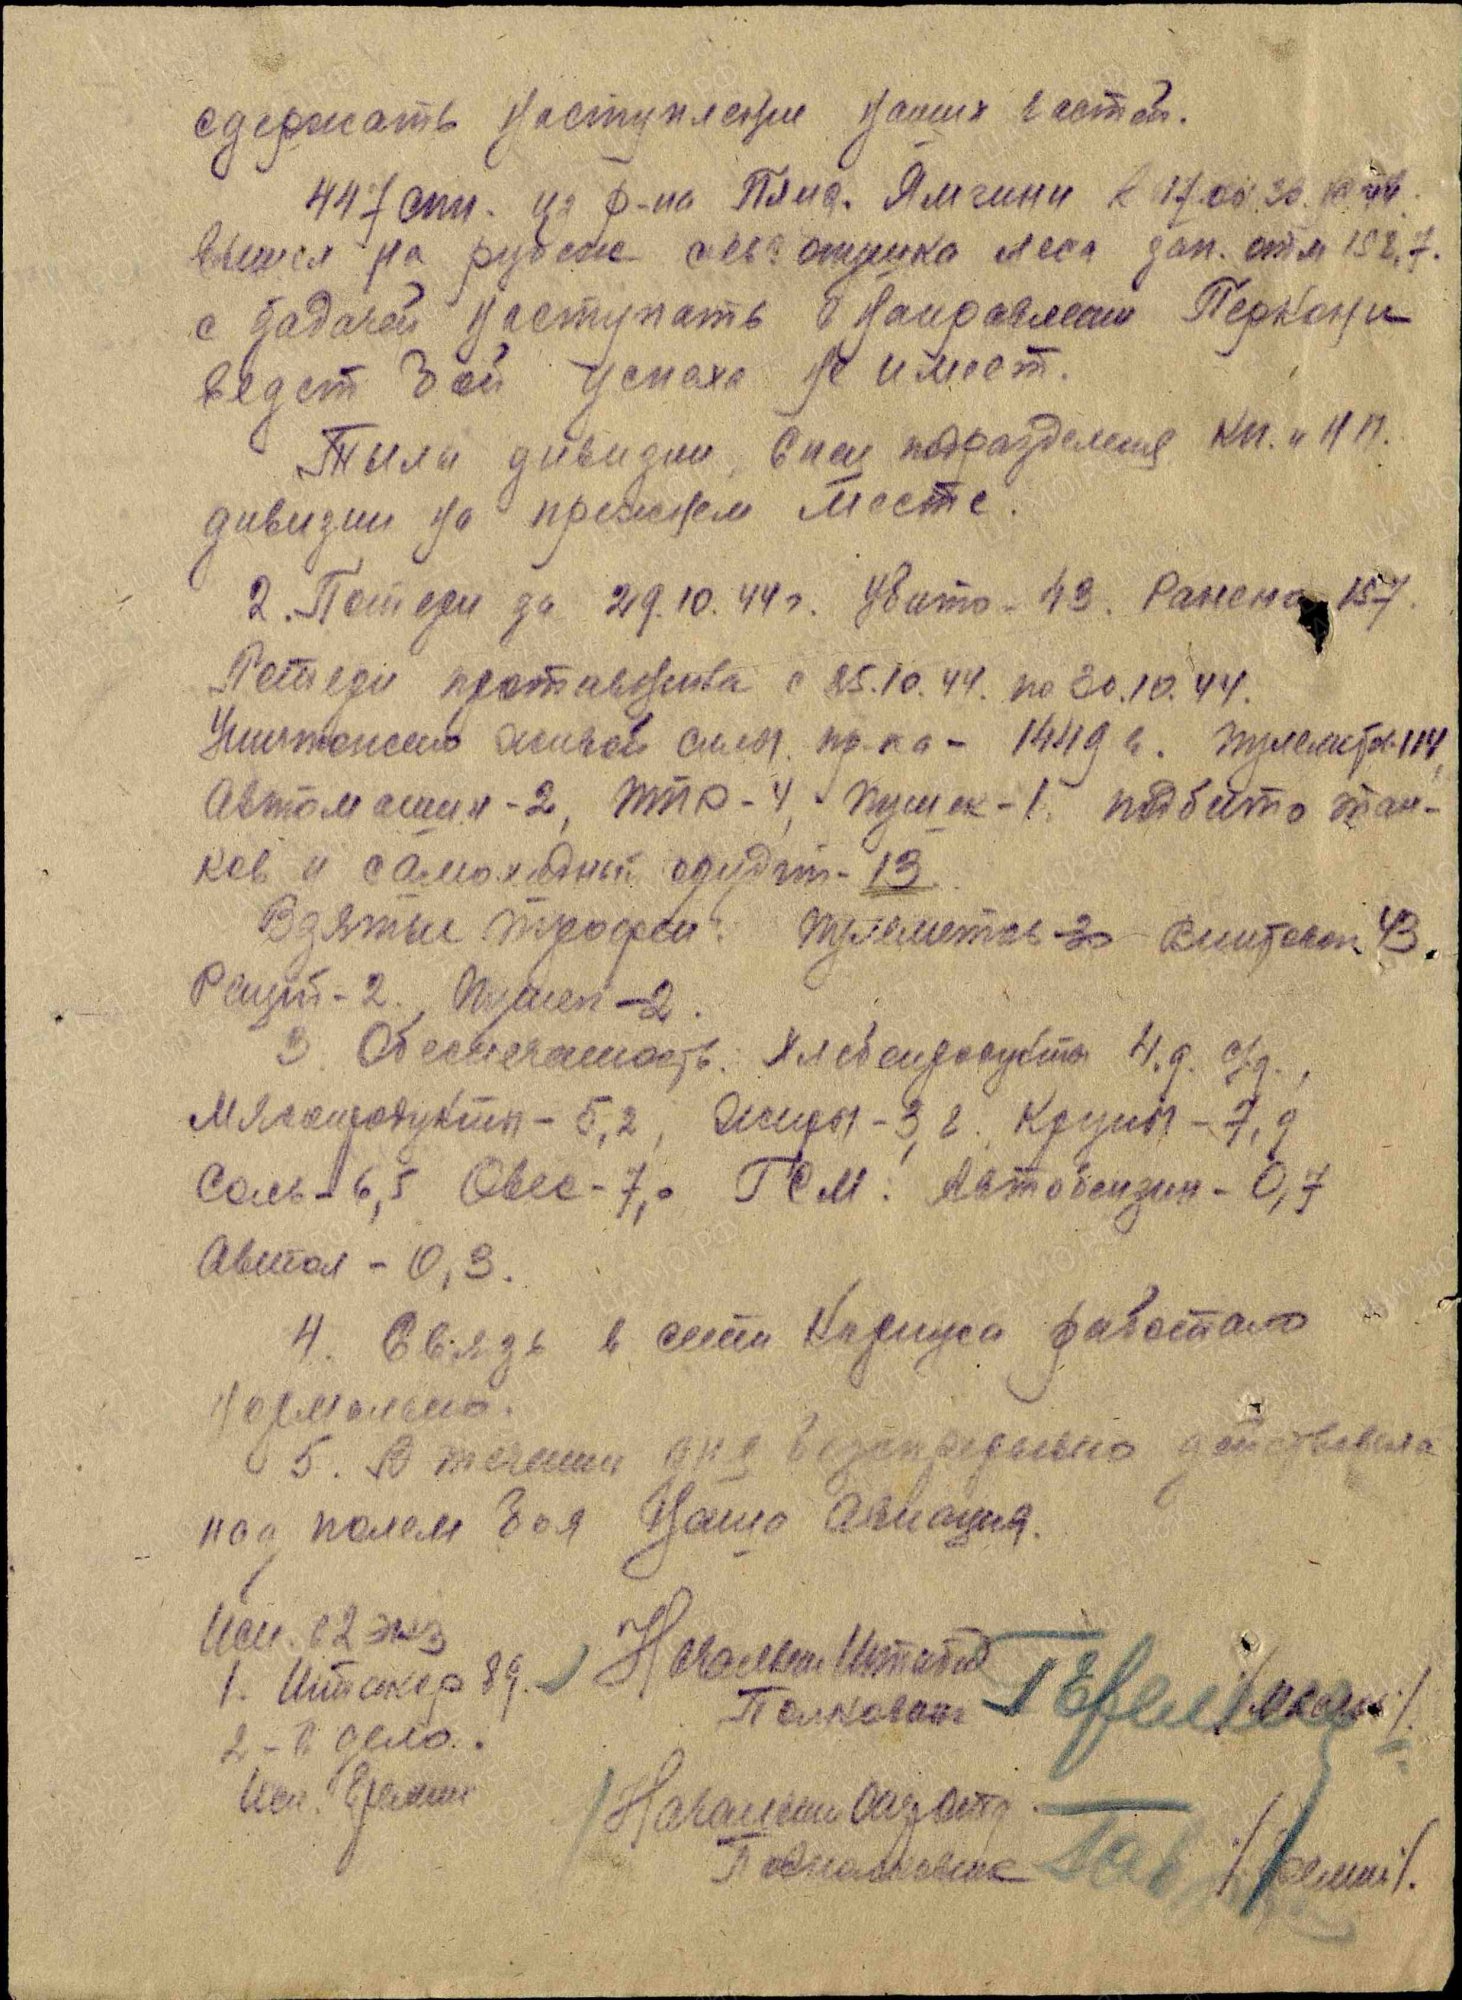 сдержать наступление наших частей.
447 сп. из р-на Пляч. Ямчини к 17.00 30.10.44.
вышел на рубеж сев. опушка леса зап. отм 152,7.
с задачей наступать в направлении Перкони
ведет бой успеха не имеет.
Тылы дивизии, спец подразделения, КП. и НП.
дивизии на прежнем месте.
2. Потери за 29.10.44 г. Убито - 43. Ранено 157.
Потери противника с 25.10.44. по 30.10.44.
Уничтожено живой силы пр-ка - 1449 ч. пулеметов 114,
Автомашин - 2, ПТР - 4, Пушек - 1. подбито тан-
ков и самоходных орудий - 13.
Взятые трофеи: Пулеметов - 30 винтовок 43.
Раций - 2. Пушек - 2.
3. Обеспеченность: Хлебопродукты 4,9 с/д.,
Мясопродукты - 5,2, Жиры - 3,2. Крупы - 7,9
Соль - 6,5 Овес - 7,0 ГСМ: Автобензин - 0,7
Автол - 0,3.
4. Связь в сети Корпуса работала
нормально.
5. В течении дня безпрерывно действовала
над полем боя Наша Авиация.
Исп. в 2 экз
1. Штакор 89.
2 - в дело.
Исп. Еремин
Начальник Штаба
Полковник
Начальник Опер отд
Подполковник /Еремин/.